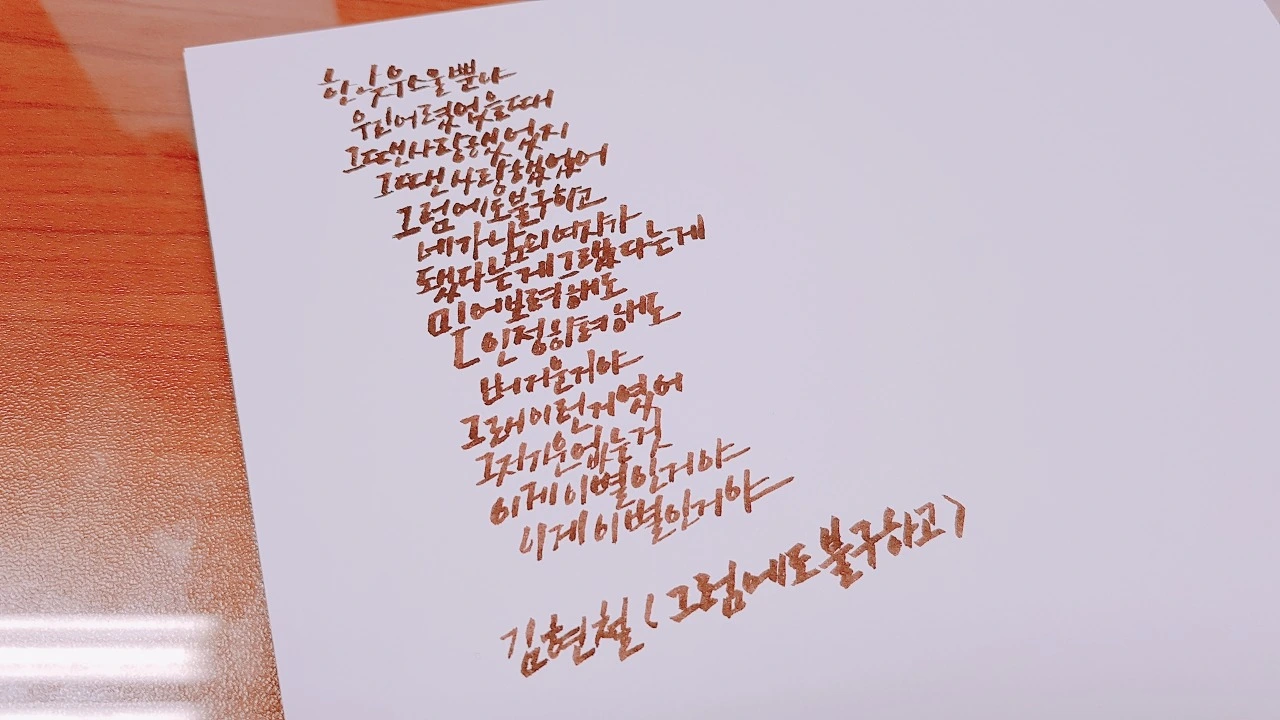 한낮우스울뿐야
우린어렸었을때
그땐사랑했었지
그땐사랑했었어
그럼에도불구하고
네가남의여자가
됐다는게그랬다는게
믿어보려해도
인정하려해도
버거운거야
그래이런거였어
그저기운없는것
이게이별인거야
이게이별인거야
김현철(그럼에도불구하고)